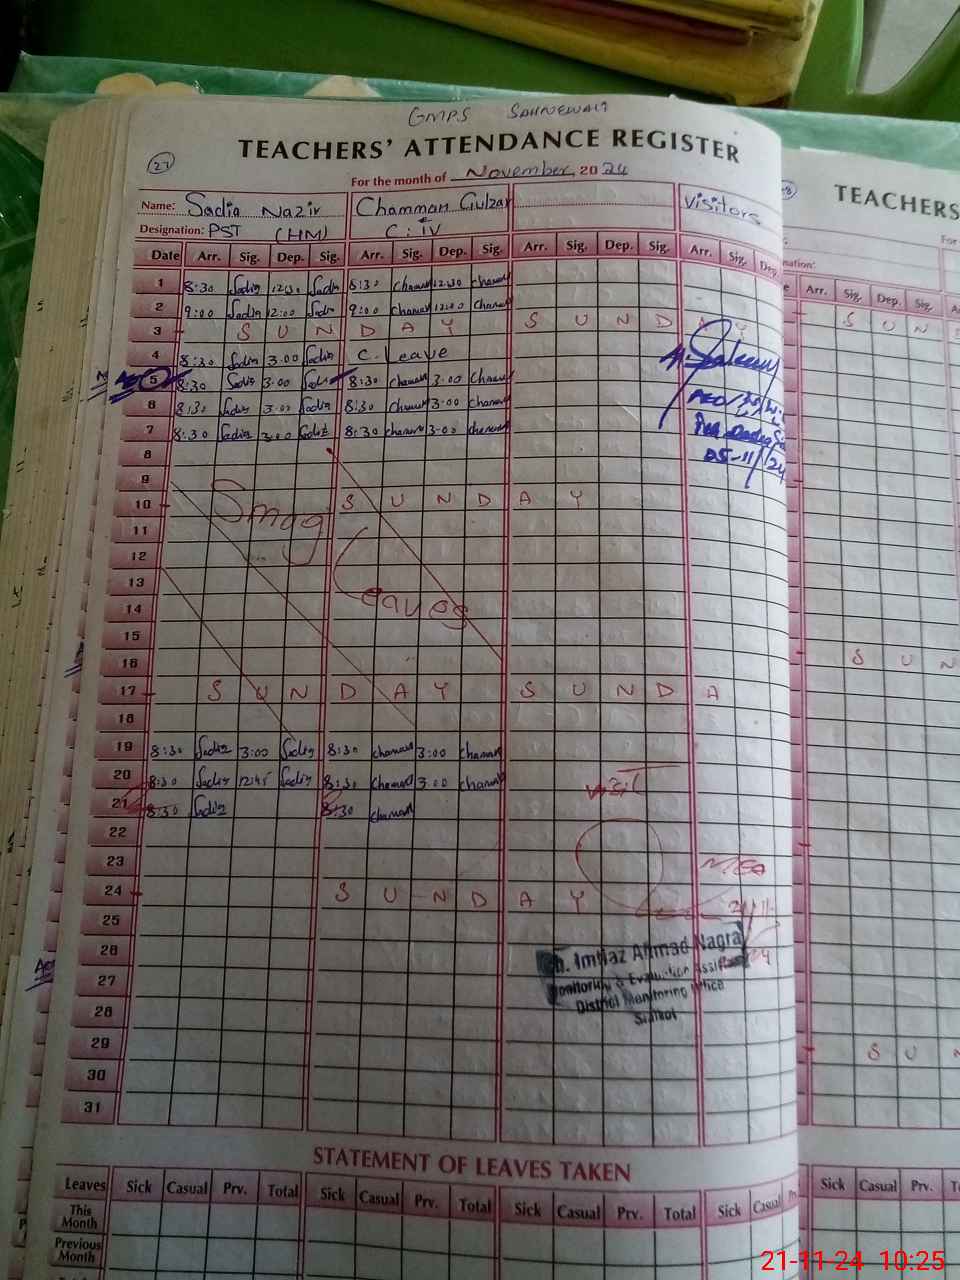 GMPS SAHNEWALI
TEACHERS' ATTENDANCE REGISTER
27
For the month of November, 2024
Name: Sadia Nazir Chamman Gulzar Visitors
Designation: PST (HM) C-IV
Date Arr. Sig. Dep. Sig. Arr. Sig. Dep. Sig. Arr. Sig. Dep. Sig. Arr. Sig. Dep.
1 8:30 Sadia 12:30 Sadia 8:30 Chaman 12:30 Chaman
2 9:00 Sadia 12:00 Sadia 9:00 Chaman 12:00 Chaman
3 S U N D A Y S U N D A Y
4 8:30 Sadia 3:00 Sadia C. Leave
5 8:30 Sadia 3:00 Sadia 8:30 Chaman 3:00 Chaman
6 8:30 Sadia 3:00 Sadia 8:30 Chaman 3:00 Chaman
7 8:30 Sadia 3:00 Sadia 8:30 Chaman 3:00 Chaman
05-11/24
8
9
10 S U N D A Y
Smog
11
12
13
Leaves
14
15
16
17 S U N D A Y S U N D A
18
19 8:30 Sadia 3:00 Sadia 8:30 Chaman 3:00 Chaman
20 8:30 Sadia 12:45 Sadia 8:30 Chaman 3:00 Chaman
Visit
21 8:30 Sadia 8:30 Chaman
22
23
MEA
24 S U N D A Y
25
26
Ch. Imtiaz Ahmad Nagra
Monitoring & Evaluation Assistant
District Monitoring Office
Sialkot
27
28
29
30
31
STATEMENT OF LEAVES TAKEN
Leaves Sick Casual Prv. Total Sick Casual Prv. Total Sick Casual Prv. Total Sick Casual
This Month
Previous Month
TEACHERS
For
nation:
Arr. Sig. Dep. Sig.
S U N
S U N
S U N
Sick Casual Prv.
21-11-24 10:25